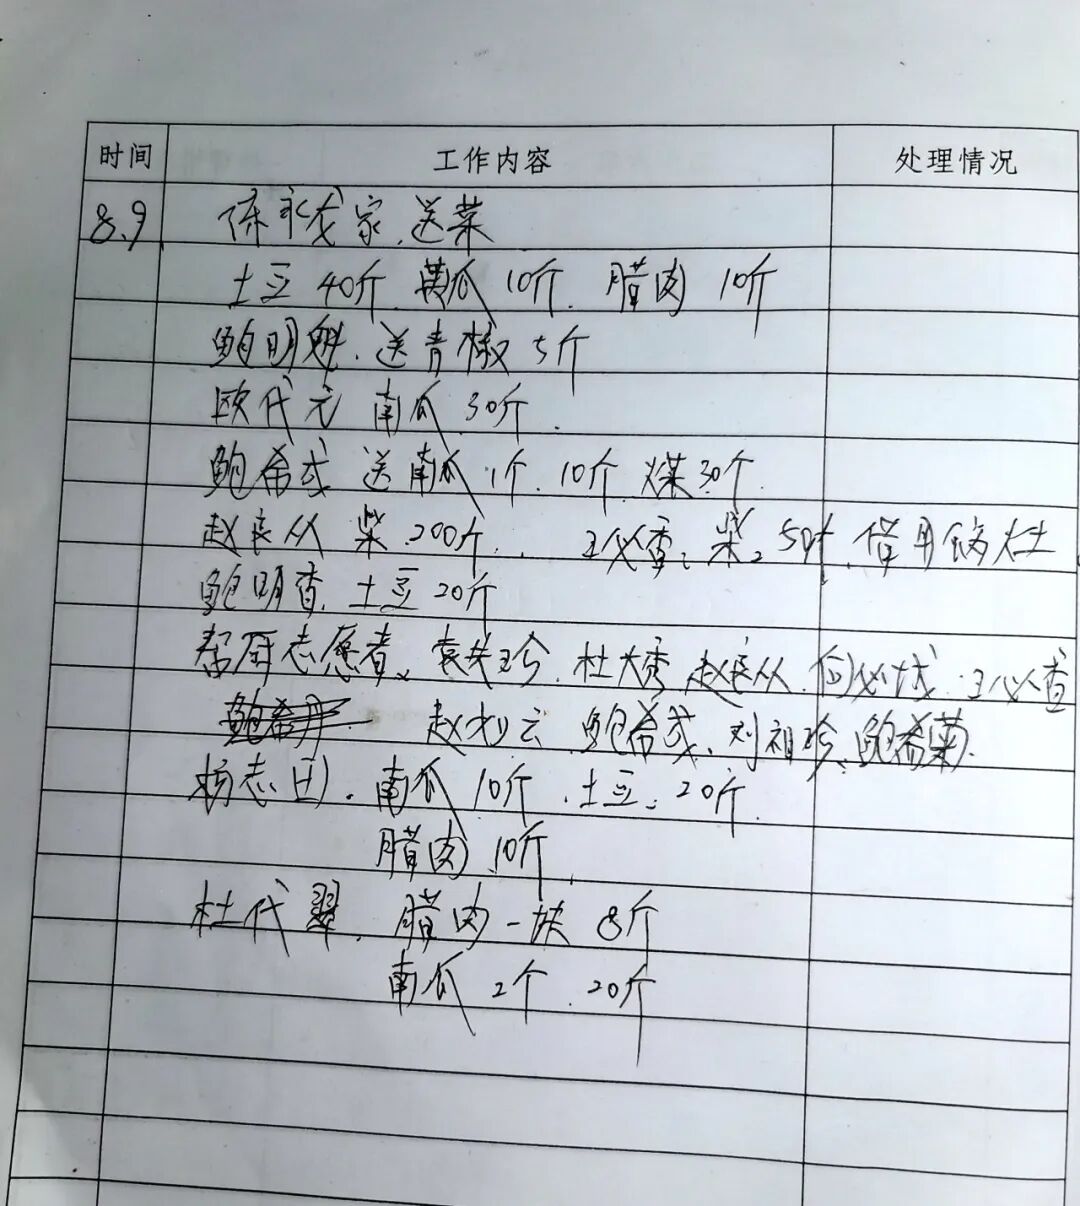 时间 工作内容 处理情况
8.9 陈永成家.送菜
土豆 40斤 黄瓜 10斤. 腊肉 10斤
鲍明魁.送青椒 5斤
欧代元 南瓜 30斤.
鲍希成 送南瓜 1个.10斤 煤30个.
赵良从 柴 200斤. 王必香、柴、50斤.借用锅灶
鲍明香. 土豆 20斤
帮厨志愿者、袁先珍.杜大秀 赵良从. 必成.王必香
赵 云 鲍希成、刘祖珍、鲍希菊.
杨志田.南瓜 10斤.土豆.20斤.
腊肉 10斤.
杜代翠.腊肉一块 8斤
南瓜 2个.20斤